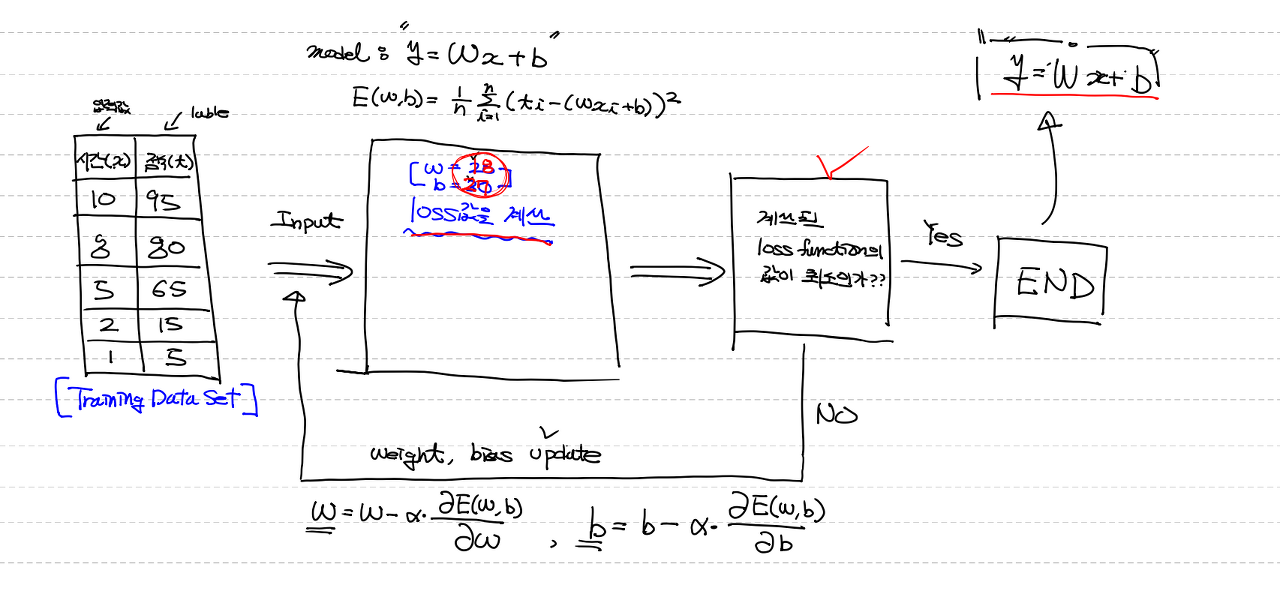 model : "y = Wx + b"
E(w,b) = 1/n Σ_{i=1}^{n} (ti - (wxi + b))²
"y = Wx + b"
입력값
lable
시간(x) 점수(t)
10 95
8 80
5 65
2 15
1 5
[Training Data Set]
Input
w =
b =
loss값을 계산
계산된
loss function의
값이 최소인가??
Yes
END
NO
weight, bias update
w = w - α · ∂E(w,b)/∂w , b = b - α · ∂E(w,b)/∂b